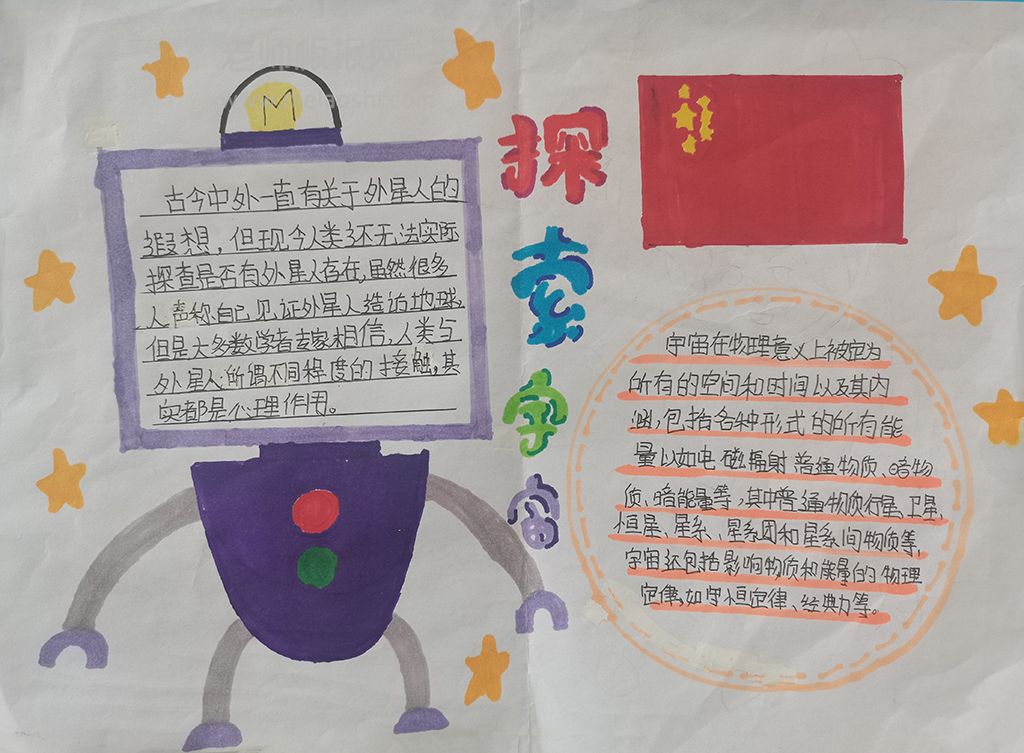 M
古今中外一直有关于外星人的
遐想，但现今人类还无法实际
探查是否有外星人存在，虽然很多
人声称自己见证外星人造访地球，
但是大多数学者专家相信，人类与
外星人所谓不同程度的接触，其
实都是心理作用。
探索宇宙
宇宙在物理意义上被定为
所有的空间和时间以及其内
涵，包括各种形式的所有能
量以如电磁辐射普通物质、暗物
质、暗能量等，其中普通物质行星、卫星、
恒星、星系、星系团和星系间物质等，
宇宙还包括影响物质和能量的物理
定律，如守恒定律、经典力等。